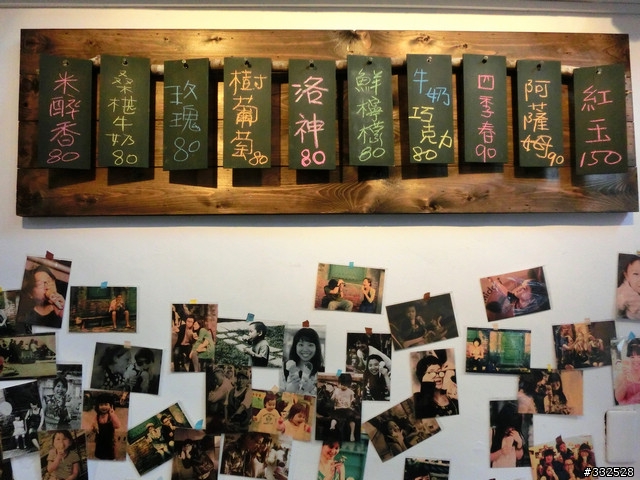 米醉香80
桑椹牛奶80
玫瑰80
樹葡萄80
洛神80
鮮檸檬80
牛奶巧克力80
四季春90
阿薩姆90
紅玉150
#332528